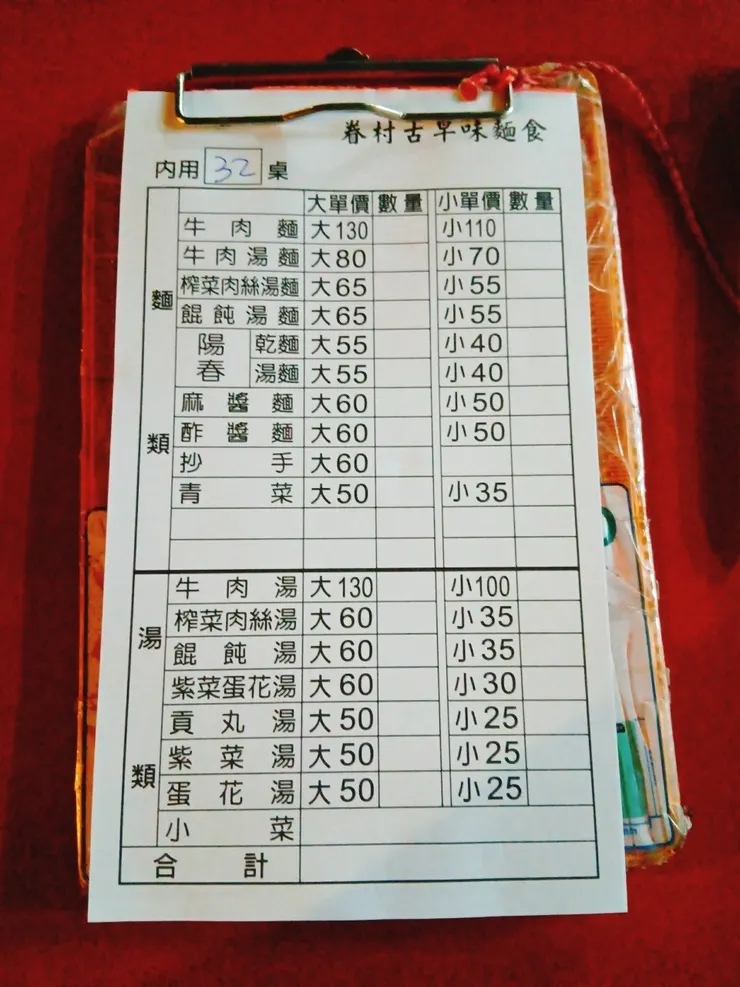 眷村古早味麵食
內用 32 桌
大單價 數量 小單價 數量
麵類
牛肉麵 大130 小110
牛肉湯麵 大80 小70
榨菜肉絲湯麵 大65 小55
餛飩湯麵 大65 小55
陽春 乾麵 大55 小40
湯麵 大55 小40
麻醬麵 大60 小50
酢醬麵 大60 小50
抄手 大60
青菜 大50 小35
湯類
牛肉湯 大130 小100
榨菜肉絲湯 大60 小35
餛飩湯 大60 小35
紫菜蛋花湯 大60 小30
貢丸湯 大50 小25
紫菜湯 大50 小25
蛋花湯 大50 小25
小菜
合計